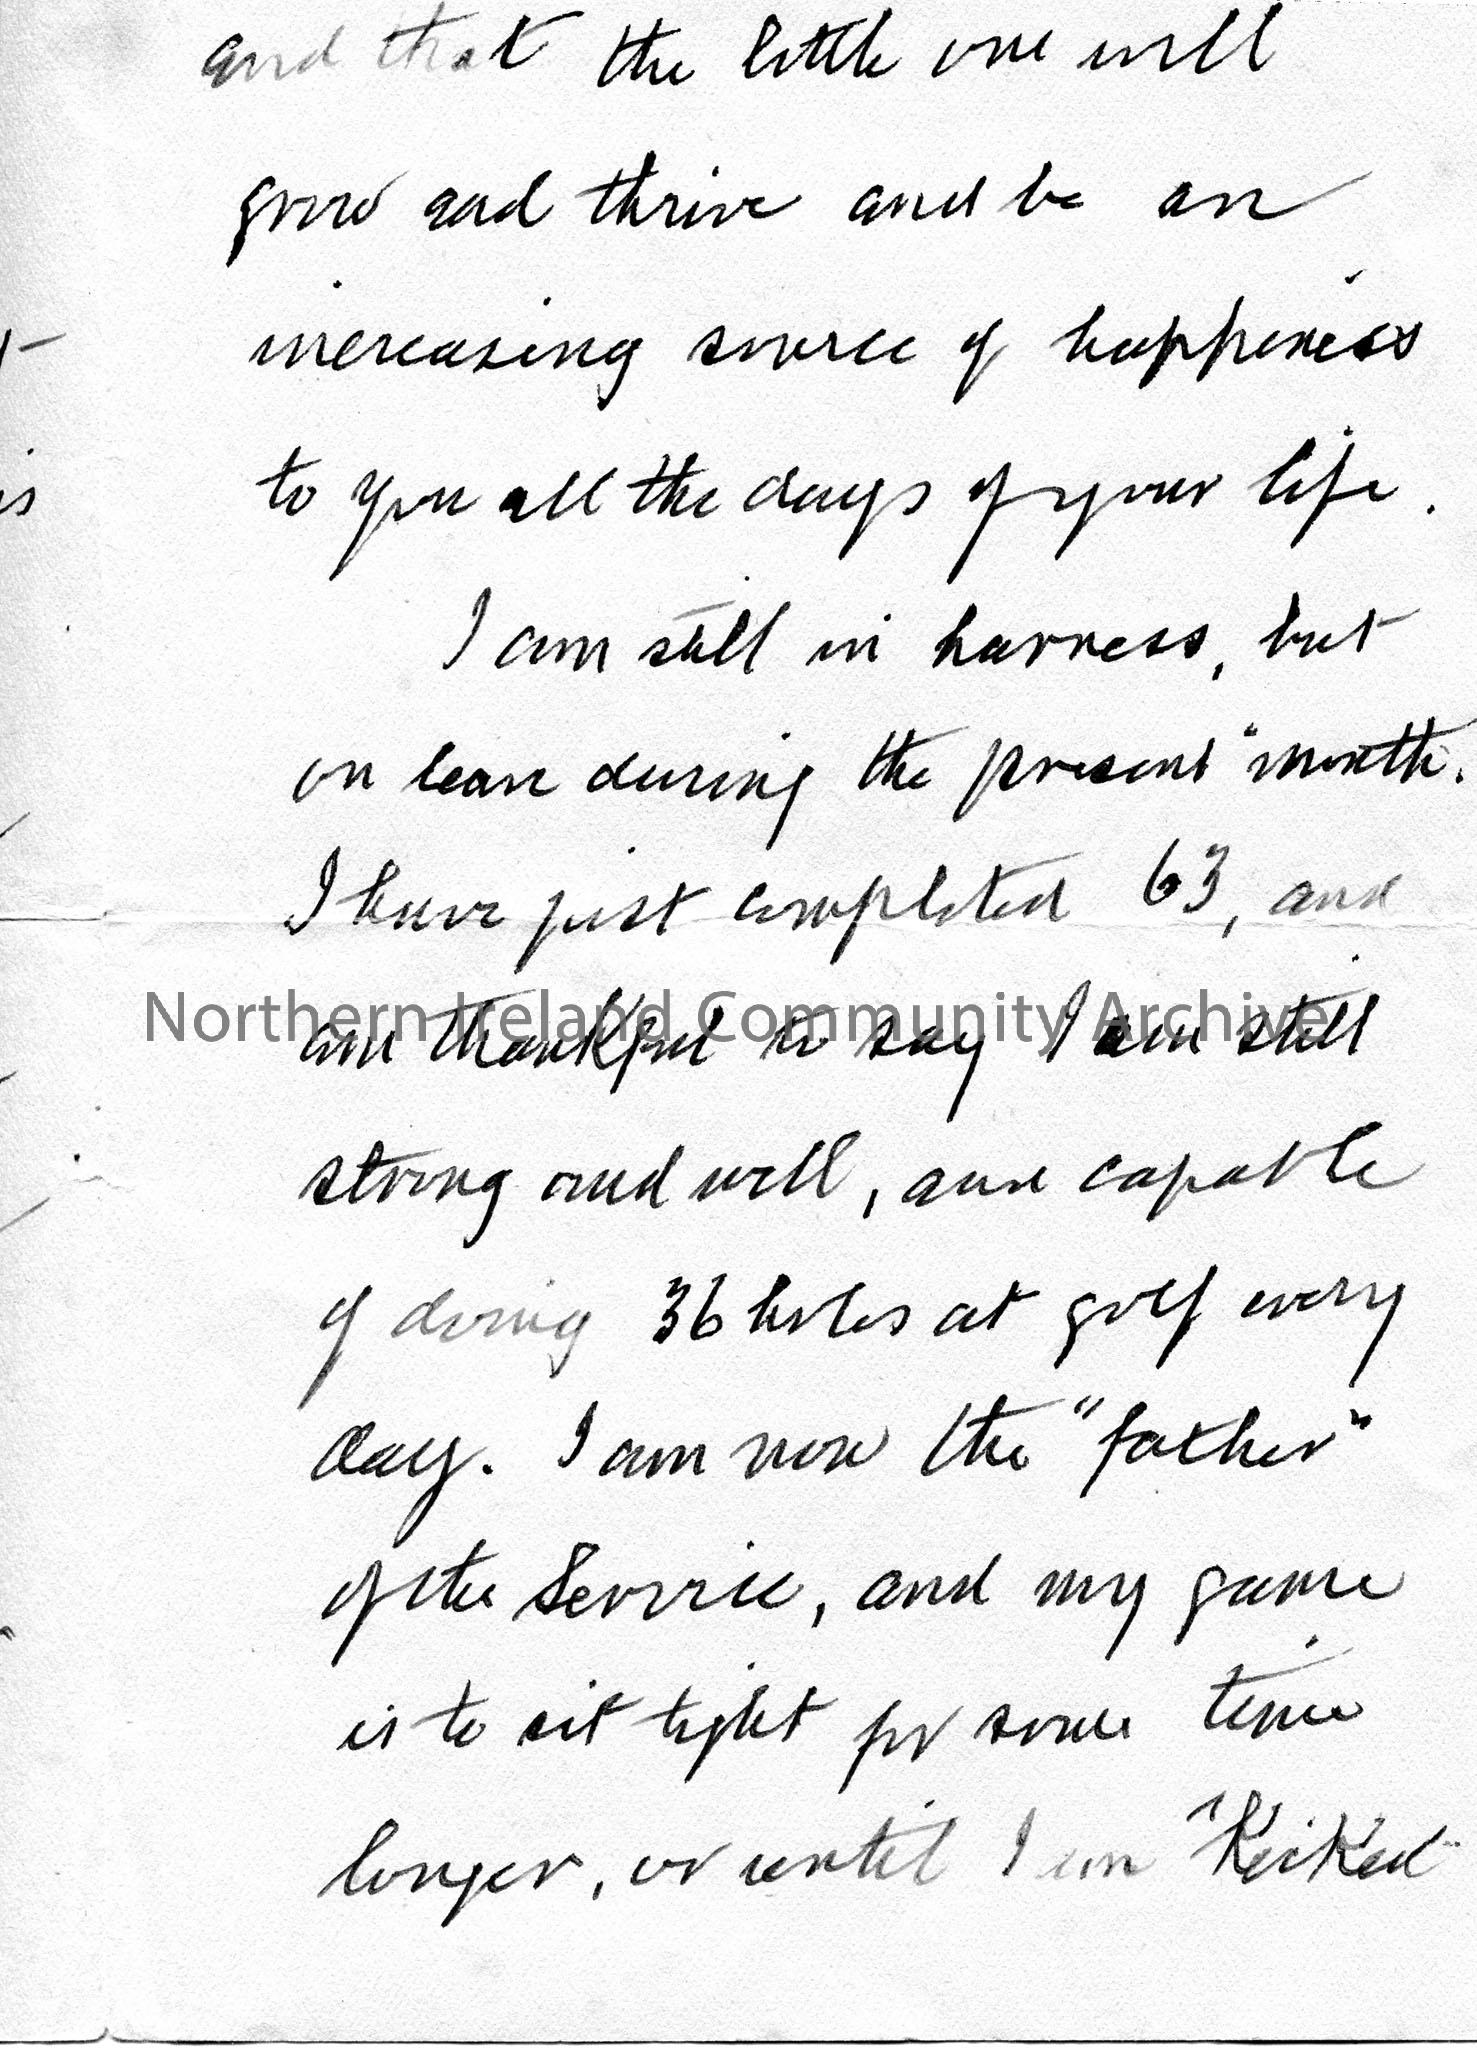 and that the little one will
grow and thrive and be an
increasing source of happiness
to you all the days of your life.
I am still in harness, but
on leave during the present month.
I have just completed 63, and
Northern Ireland Community Archive
am thankful to say I am still
strong and well, and capable
of doing 36 holes at golf every
day. I am now the "father"
of the Service, and my game
is to sit tight for some time
longer, or until I am "Kicked